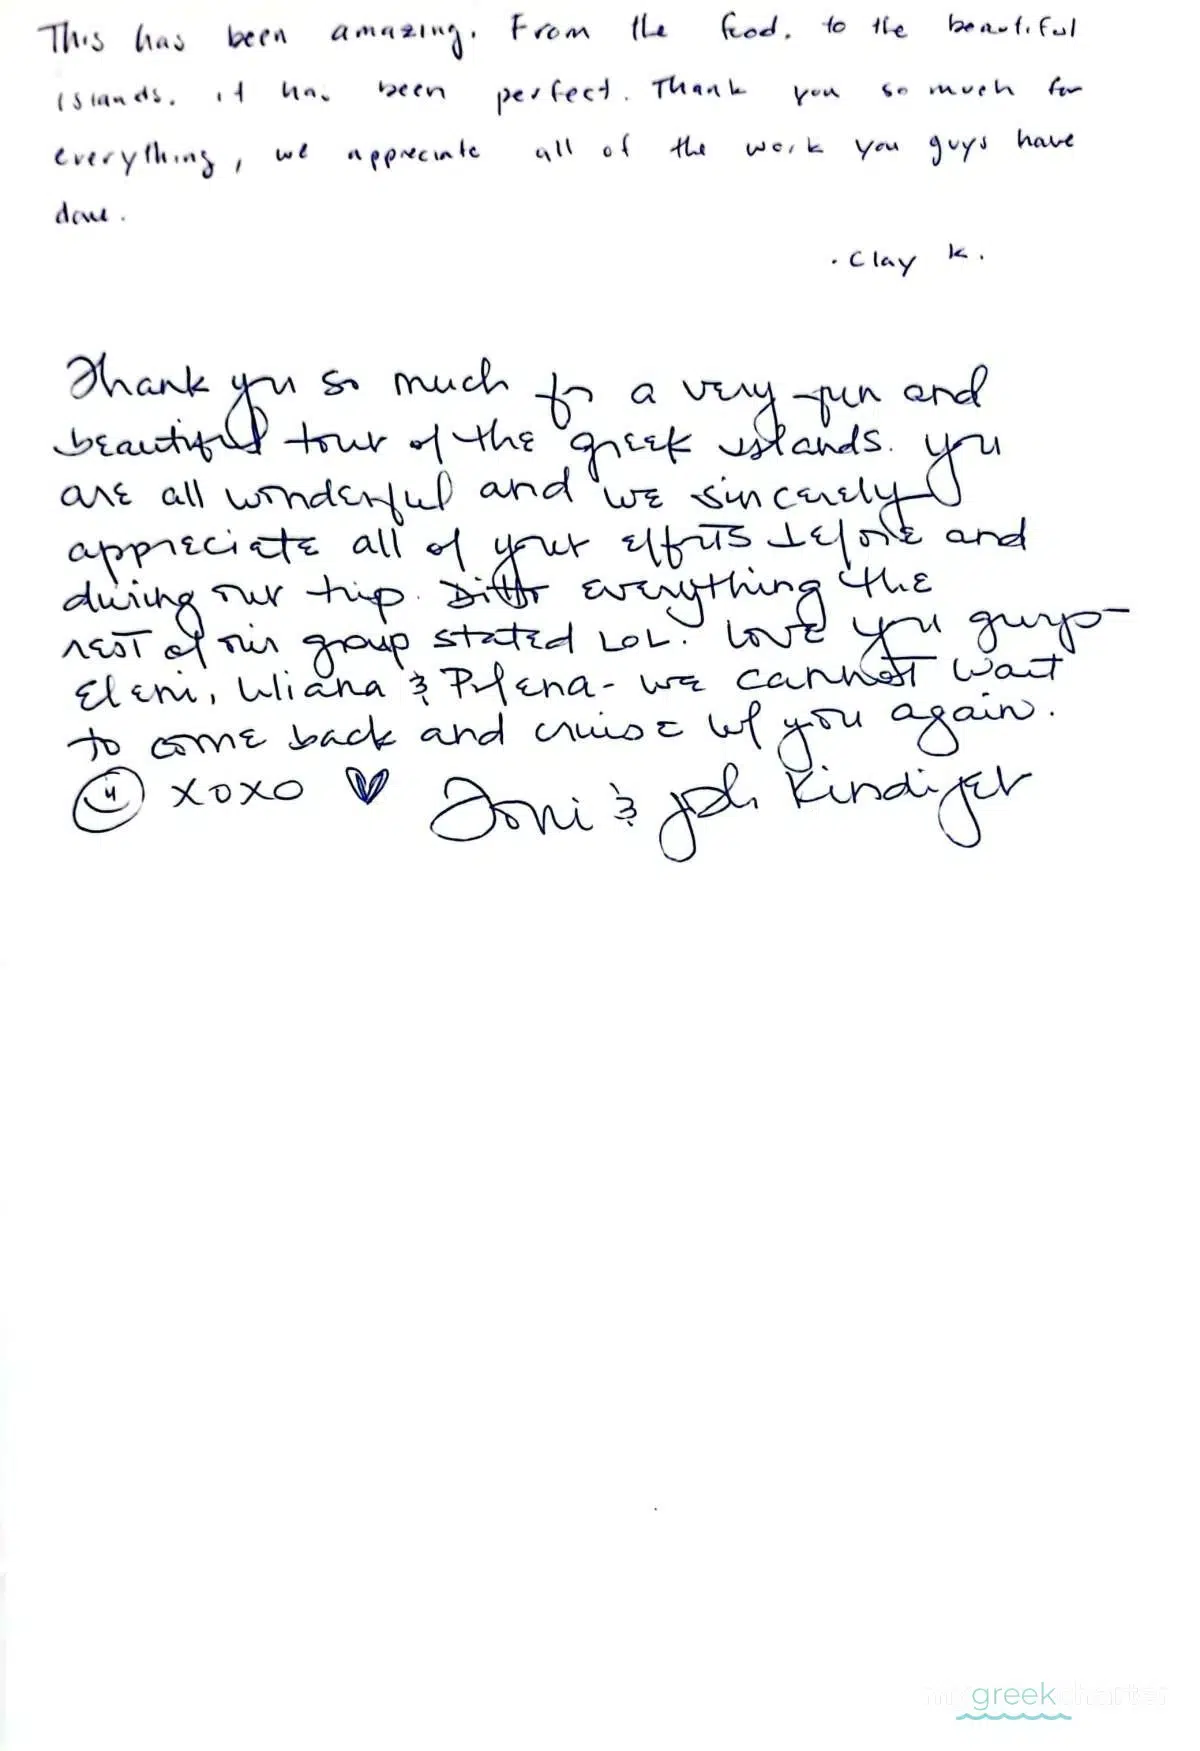 This has been amazing. From the food, to the beautiful
islands, it has been perfect. Thank you so much for
everything, we appreciate all of the work you guys have
done.
. Clay K.
Thank you so much for a very fun and
beautiful tour of the greek islands. You
are all wonderful and we sincerely
appreciate all of your efforts before and
during our trip. Ditto everything the
rest of our group stated LOL. Love you guys -
Eleni, Uliana & - we cannot wait
to come back and cruise w/ you again.
XOXO Toni & Kindiger
my greek charter